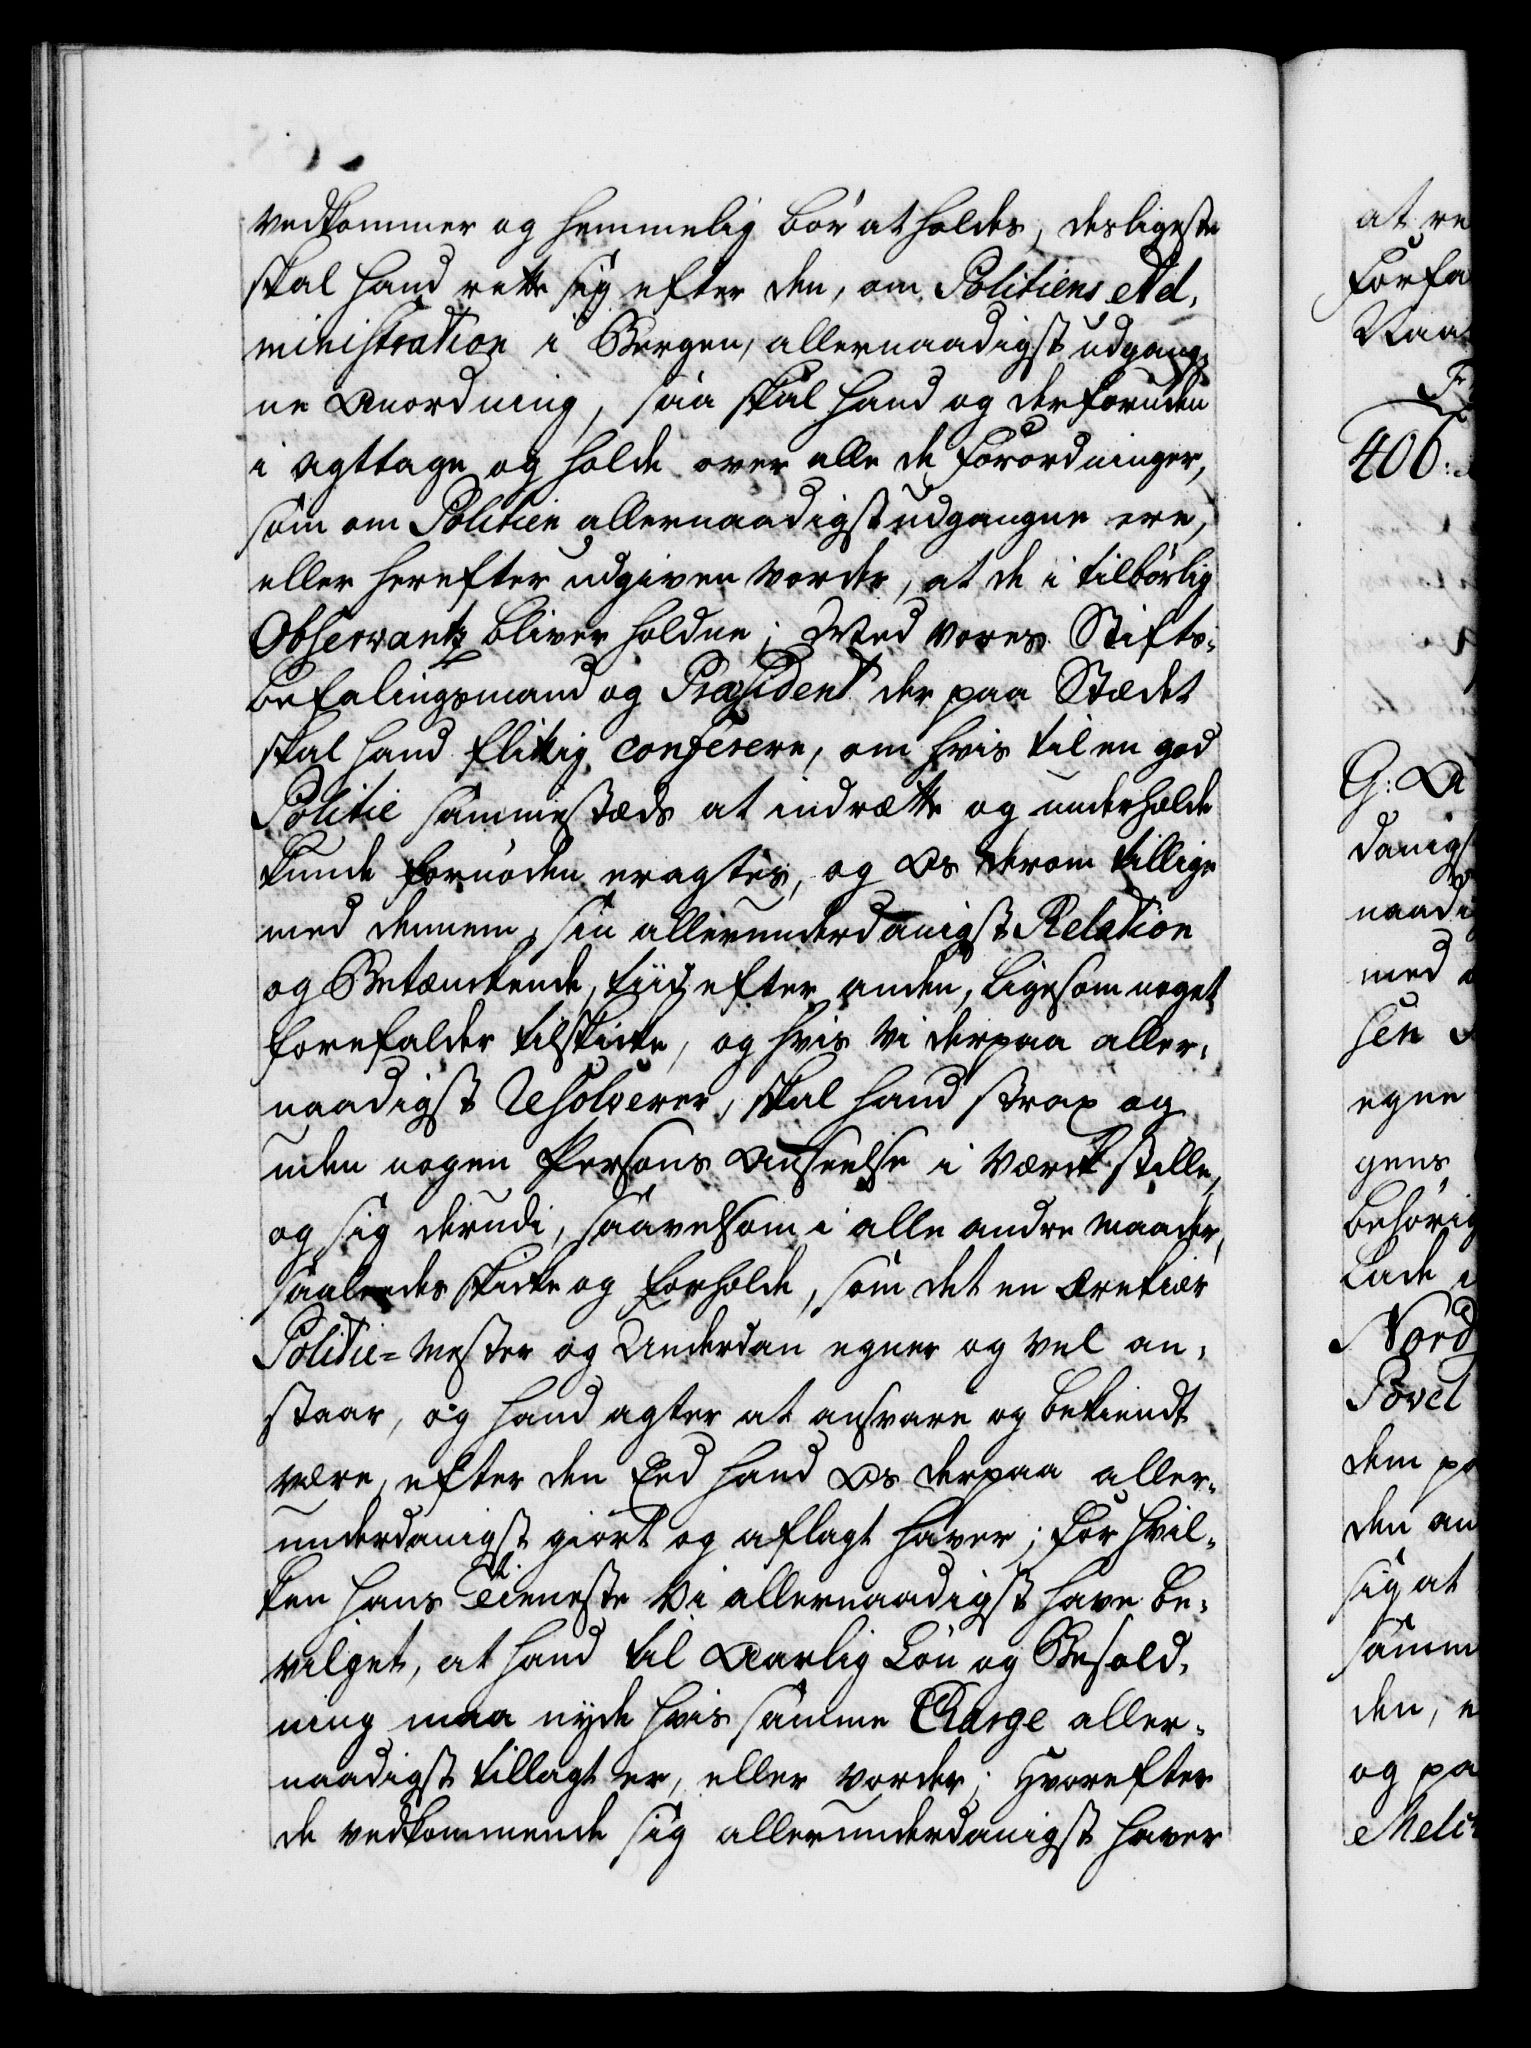 vedkommer og hemmelig bør at holdes, desligeste
skal hand rette sig efter den, om Politiens Ad,
ministration i Bergen, allernaadigst udgang,
ne Anordning, saa skal hand og derforuden
i agttage og holde over alle de Forordninger,
som om Politien allernaadigst udgangne ere,
eller herefter udgiven vorder, at de i tilbørlig
Observantz bliver holdne; Med vores Stifts,
befalingsmand og Præsident der paa Stædet
skal hand flitig conferere, om hvis til en god
Politie sammestæds at indrætte og underholde
kunde fornøden eragtes, og Os derom tillige
med dennem, sin allerunderdanigst Relation
og Betænckende, tiid efter anden, ligesom noget
forefalder tilskicke, og hvis Vi derpaa aller,
naadigst Resolverer, skal hand strax og
uden nogen Persons Anseelse i Værck stille,
og sig derudi, saavelsom i alle andre maader,
saaleedes skicke og forholde, som det en ærekiær
Politie=Mester og Underdan egner og vel an,
staar, og hand agter at ansvare og bekiendt
være, efter den Eed hand Os derpaa aller,
underdanigst giort og aflagt haver; For hvil,
ken hans Tieneste Vi allernaadigst have be,
vilget, at hand til Aarlig Løn og Besold,
ning maa nyde hvis samme Charge aller,
naadigst tillagt er, eller vorder; Hvorefter
de vedkommende sig allerunderdanigst haver
at re
Forfa
Naa
406:
G: A
danigs
naadi
med
sen
egne
gens
behørig
Lade i
Nord
Povel
dem pa
den an
sig at
samm
den, e
og pa
Melch